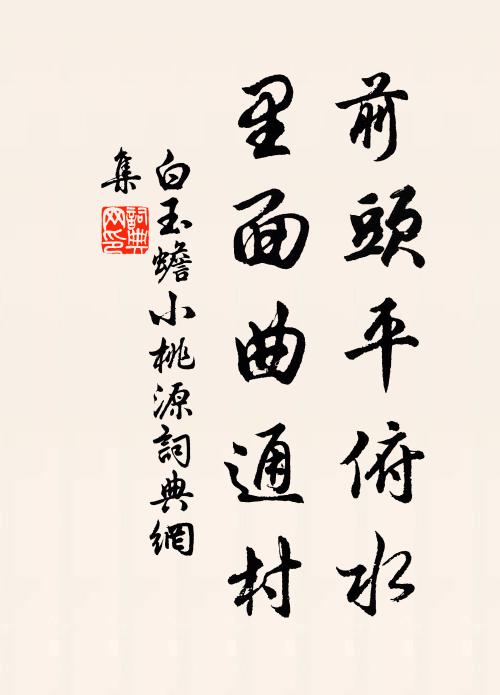 前頭平俯水
里面曲通村
白玉蟾小桃源詞典網
集
詞典網印